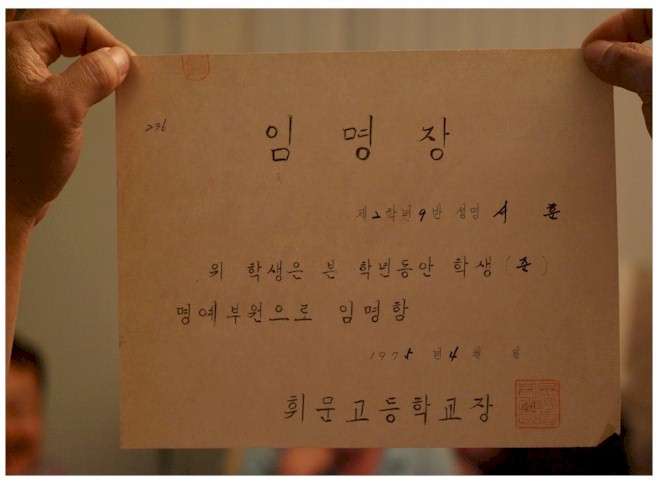 236
임 명 장
제 2 학년 9 반 성명 서 훈
위 학생은 본 학년동안 학생 (준)
명예부원으로 임명함
1975 년 4 월 일
휘문고등학교장